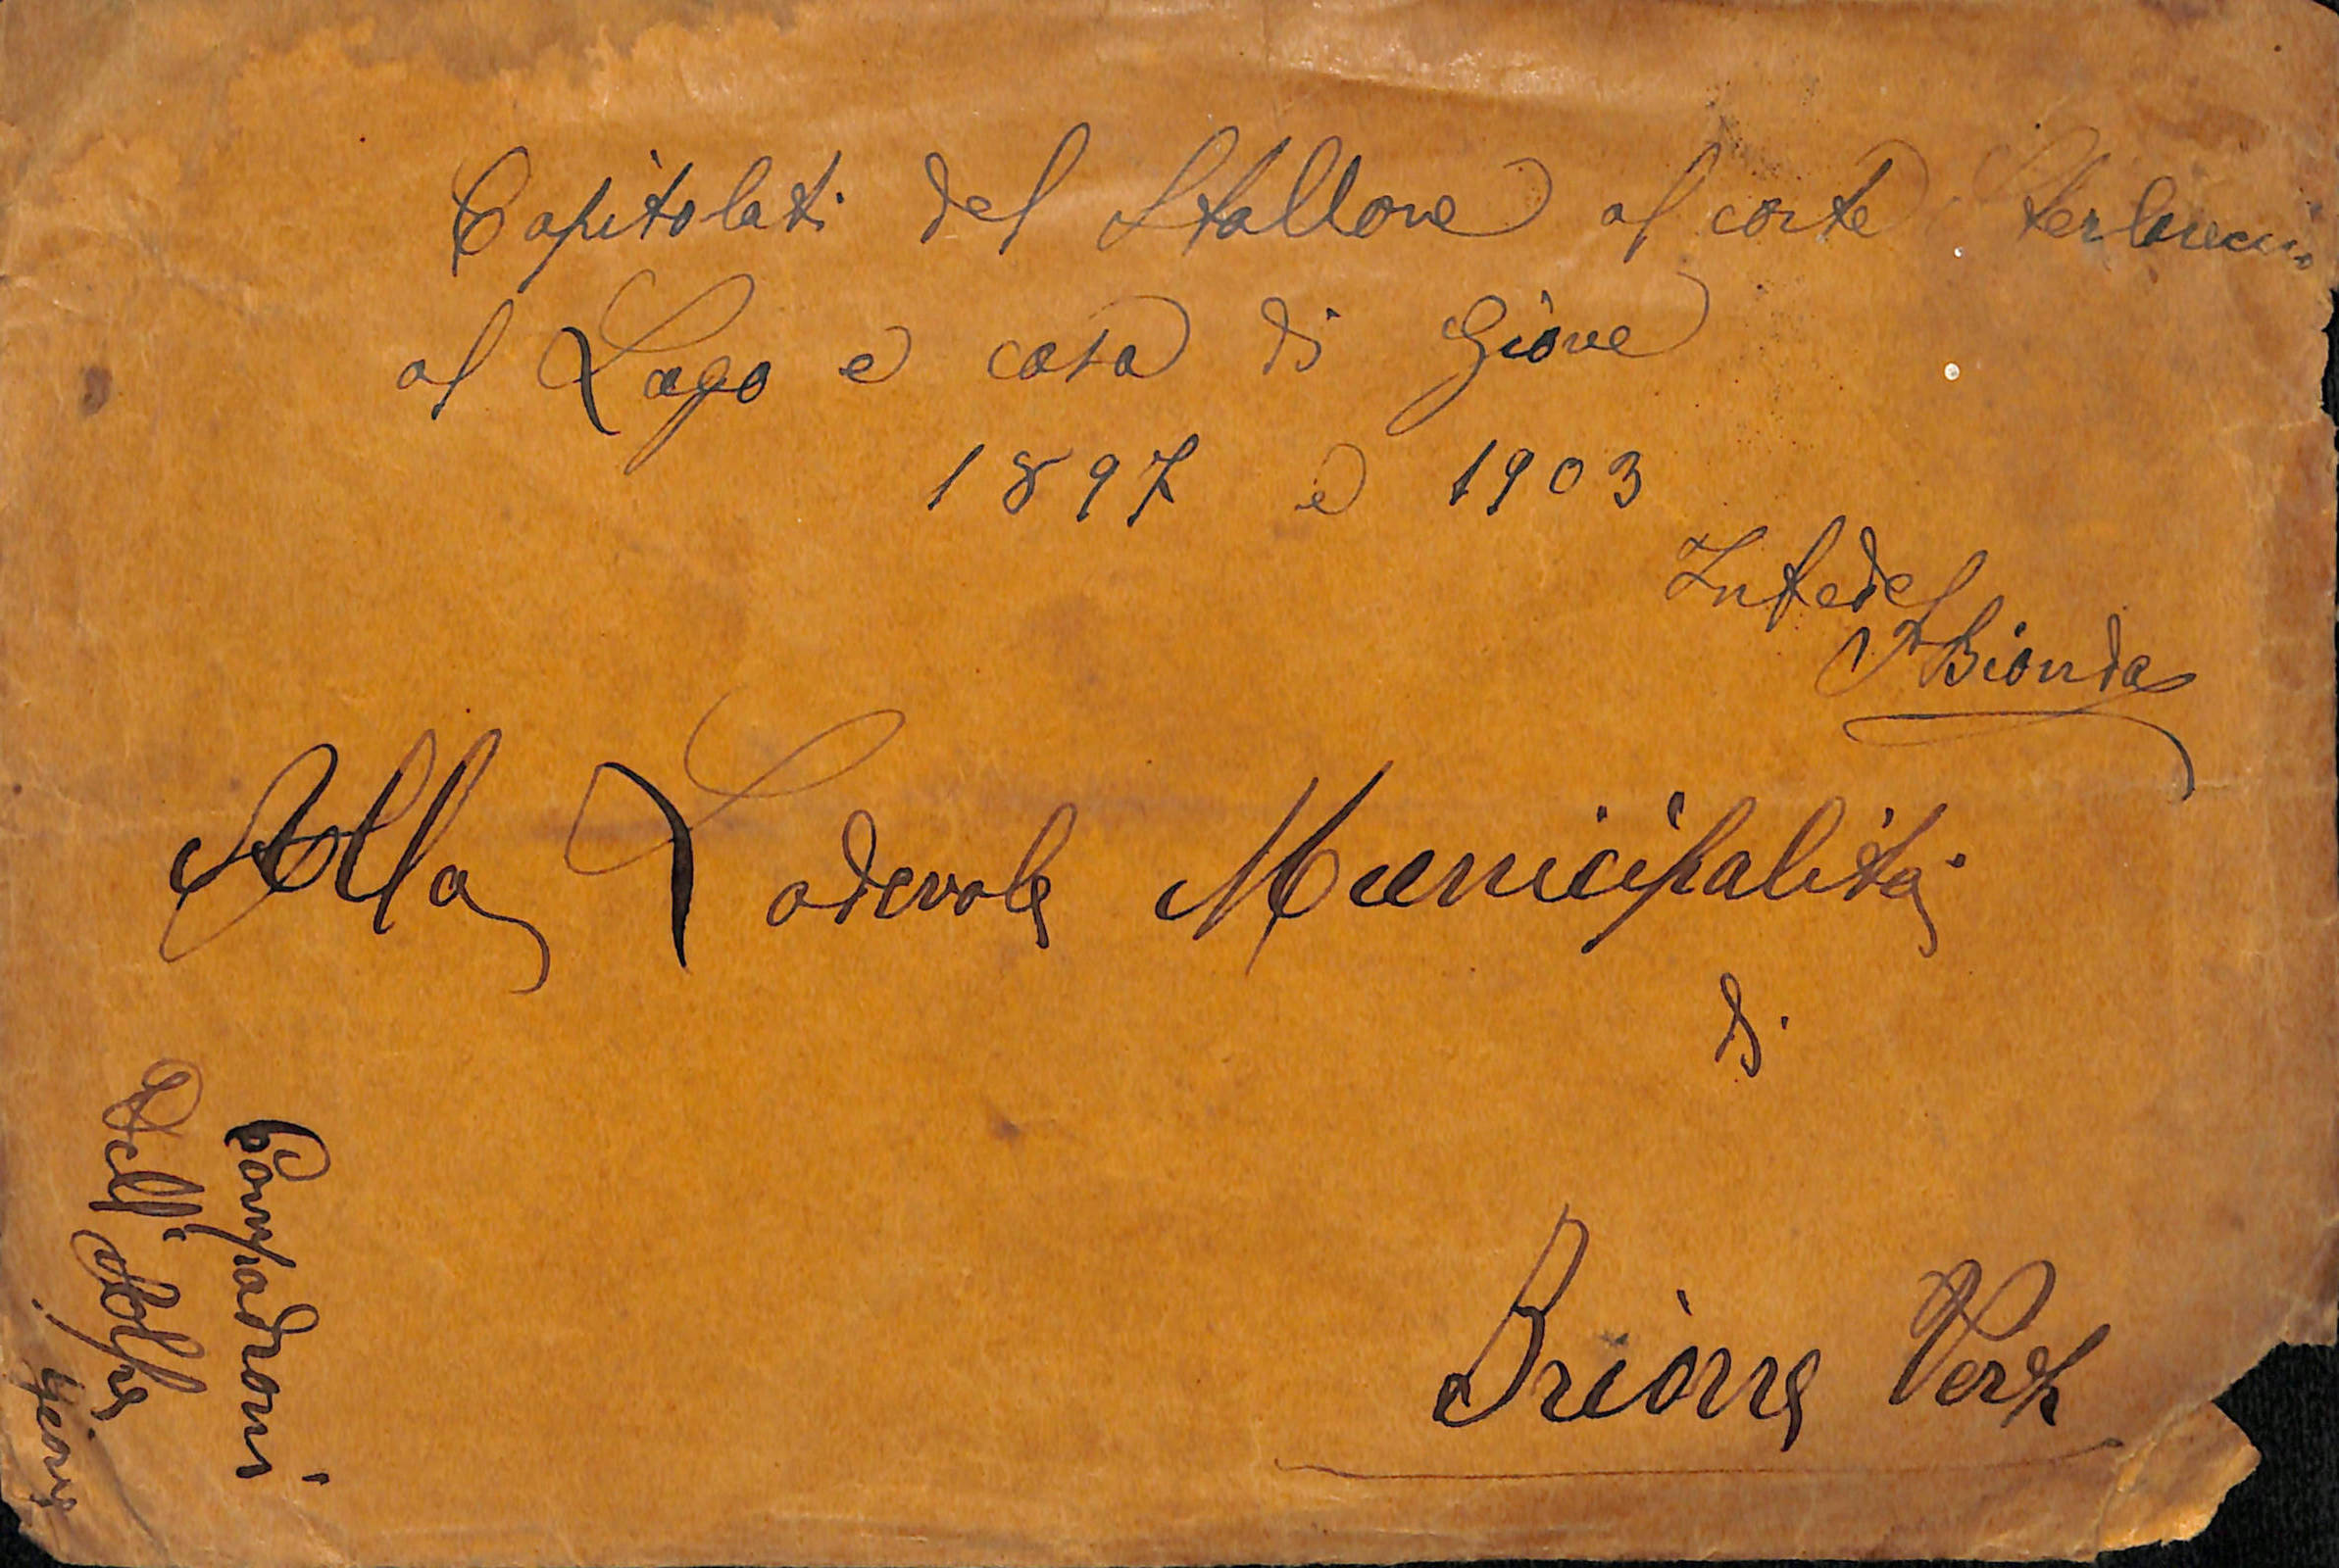 Capitolati del Stallone al corte
al Lago e casa di Giove
1897 e 1903
In fede
F Bionda
Alla Lodevole Municipalità
di
Brione Verz
Compadroni
Dell' Alpe
Giove